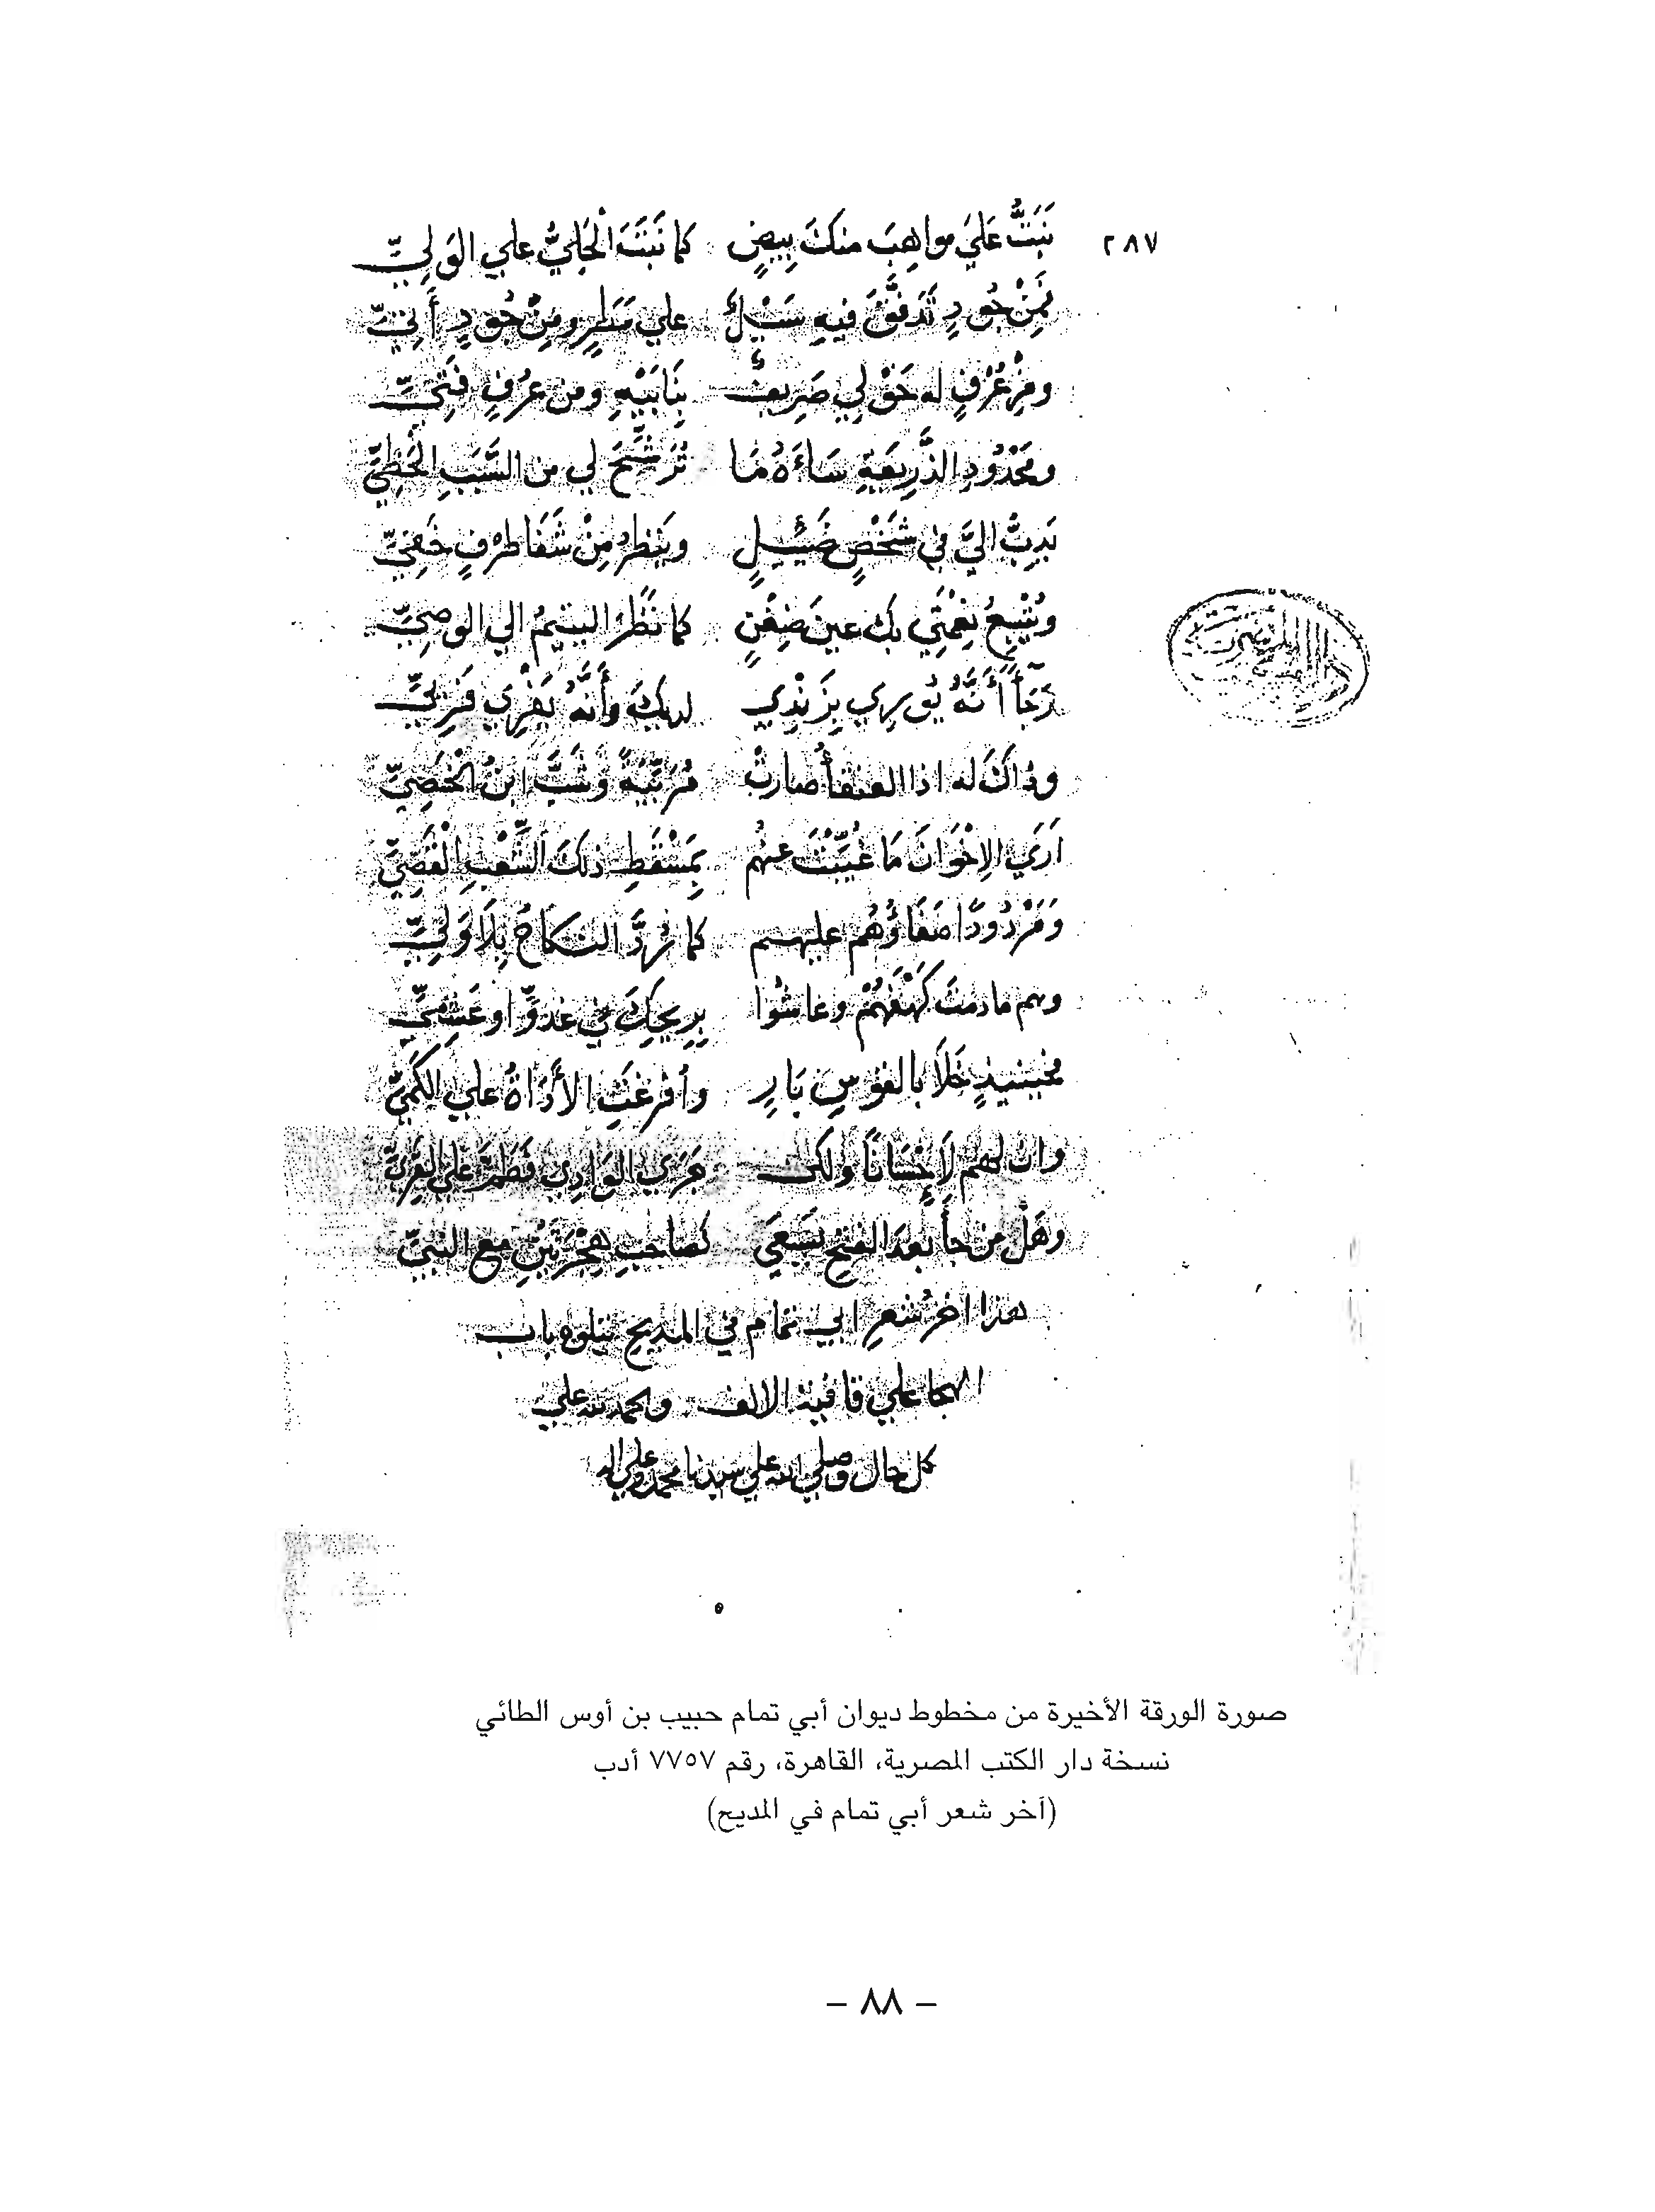 ٢٨٧
نَبَتُّ عَلَي مواهِبَ منكَ بِيضٍ كما نَبَتَ الْحَلِيُّ علي الوَلِيِّ
فمِنْ جُودٍ تَدَفَّقَ فيهِ سَيْلٌ علي مَطَرٍ ومِنْ جُودٍ أَتِيِّ
ومِنْ عُرْفٍ له حَوْلِي صَرِيفٌ بِنَابَيْهِ ومن عُرُفٍ فَتِيِّ
ومَحْدُودِ الذَّرِيعَةِ سَاءَهُ مَا تُرَشِّحُ لي من السَّبَبِ الْحَظِيِّ
يَدِبُّ اليَّ في شَخْصٍ ضَئِيلٍ وينظرُ مِنْ شَفَا طَرْفٍ خَفِيِّ
ويُتْبِعُ نِعْمَتِي بك عينَ ضِغْنٍ كما نَظَرَ اليتيمُ الي الوصِيِّ
رَجَاً أَنَّهُ يُورِي بِزَنْدِي لديكَ وأَنَّهُ يَفْرِي فَرِيِّ
وذاكَ له اذا العنقأُ صارتْ مُرَبَّبَةً وَشَبَّ ابنُ الْخَصِيِّ
اَرَي الاِخْوَانَ مَا غُيِّبْتَ عنهُم بِمَسْقَطِ ذلكَ الشِّعْبِ الْقَصِيِّ
وَمَرْدُودًا صَفَاؤُهُم عليهـم كما رُدَّ النكاحُ بِلاَ وَلِيِّ
وهم مادمتَ كَهْفَهُمُ وعاشُوا بِرِيحِكَ في غدوٍّ او عَشِيِّ
فحينيذٍ خَلاَ بالقوسِ بَارٍ وأفرغتِ الأَدَاةُ علي الكَمِيِّ
وان لهم لَإِحْسَانًا ولكن جَرَي الوَادِي فَطَمَّ عَلَي القَرِيِّ
وهَلْ من جأَ بعدَ الفتحِ يَسْعَي كصاحبِ هِجْرَتَيْنِ مع النبيِّ
هذا اخرُ شعرِ ابي تمام في المديحِ يتلوه باب
الهجا علي قافية الالف والحمد لله علي
كل حال وصلي الله علي سيدنا محمد وعلي اله
صورة الورقة الأخيرة من مخطوط ديوان أبي تمام حبيب بن أوس الطائي
نسخة دار الكتب المصرية، القاهرة، رقم ٧٧٥٧ أدب
(آخر شعر أبي تمام في المديح)
– ٨٨ –